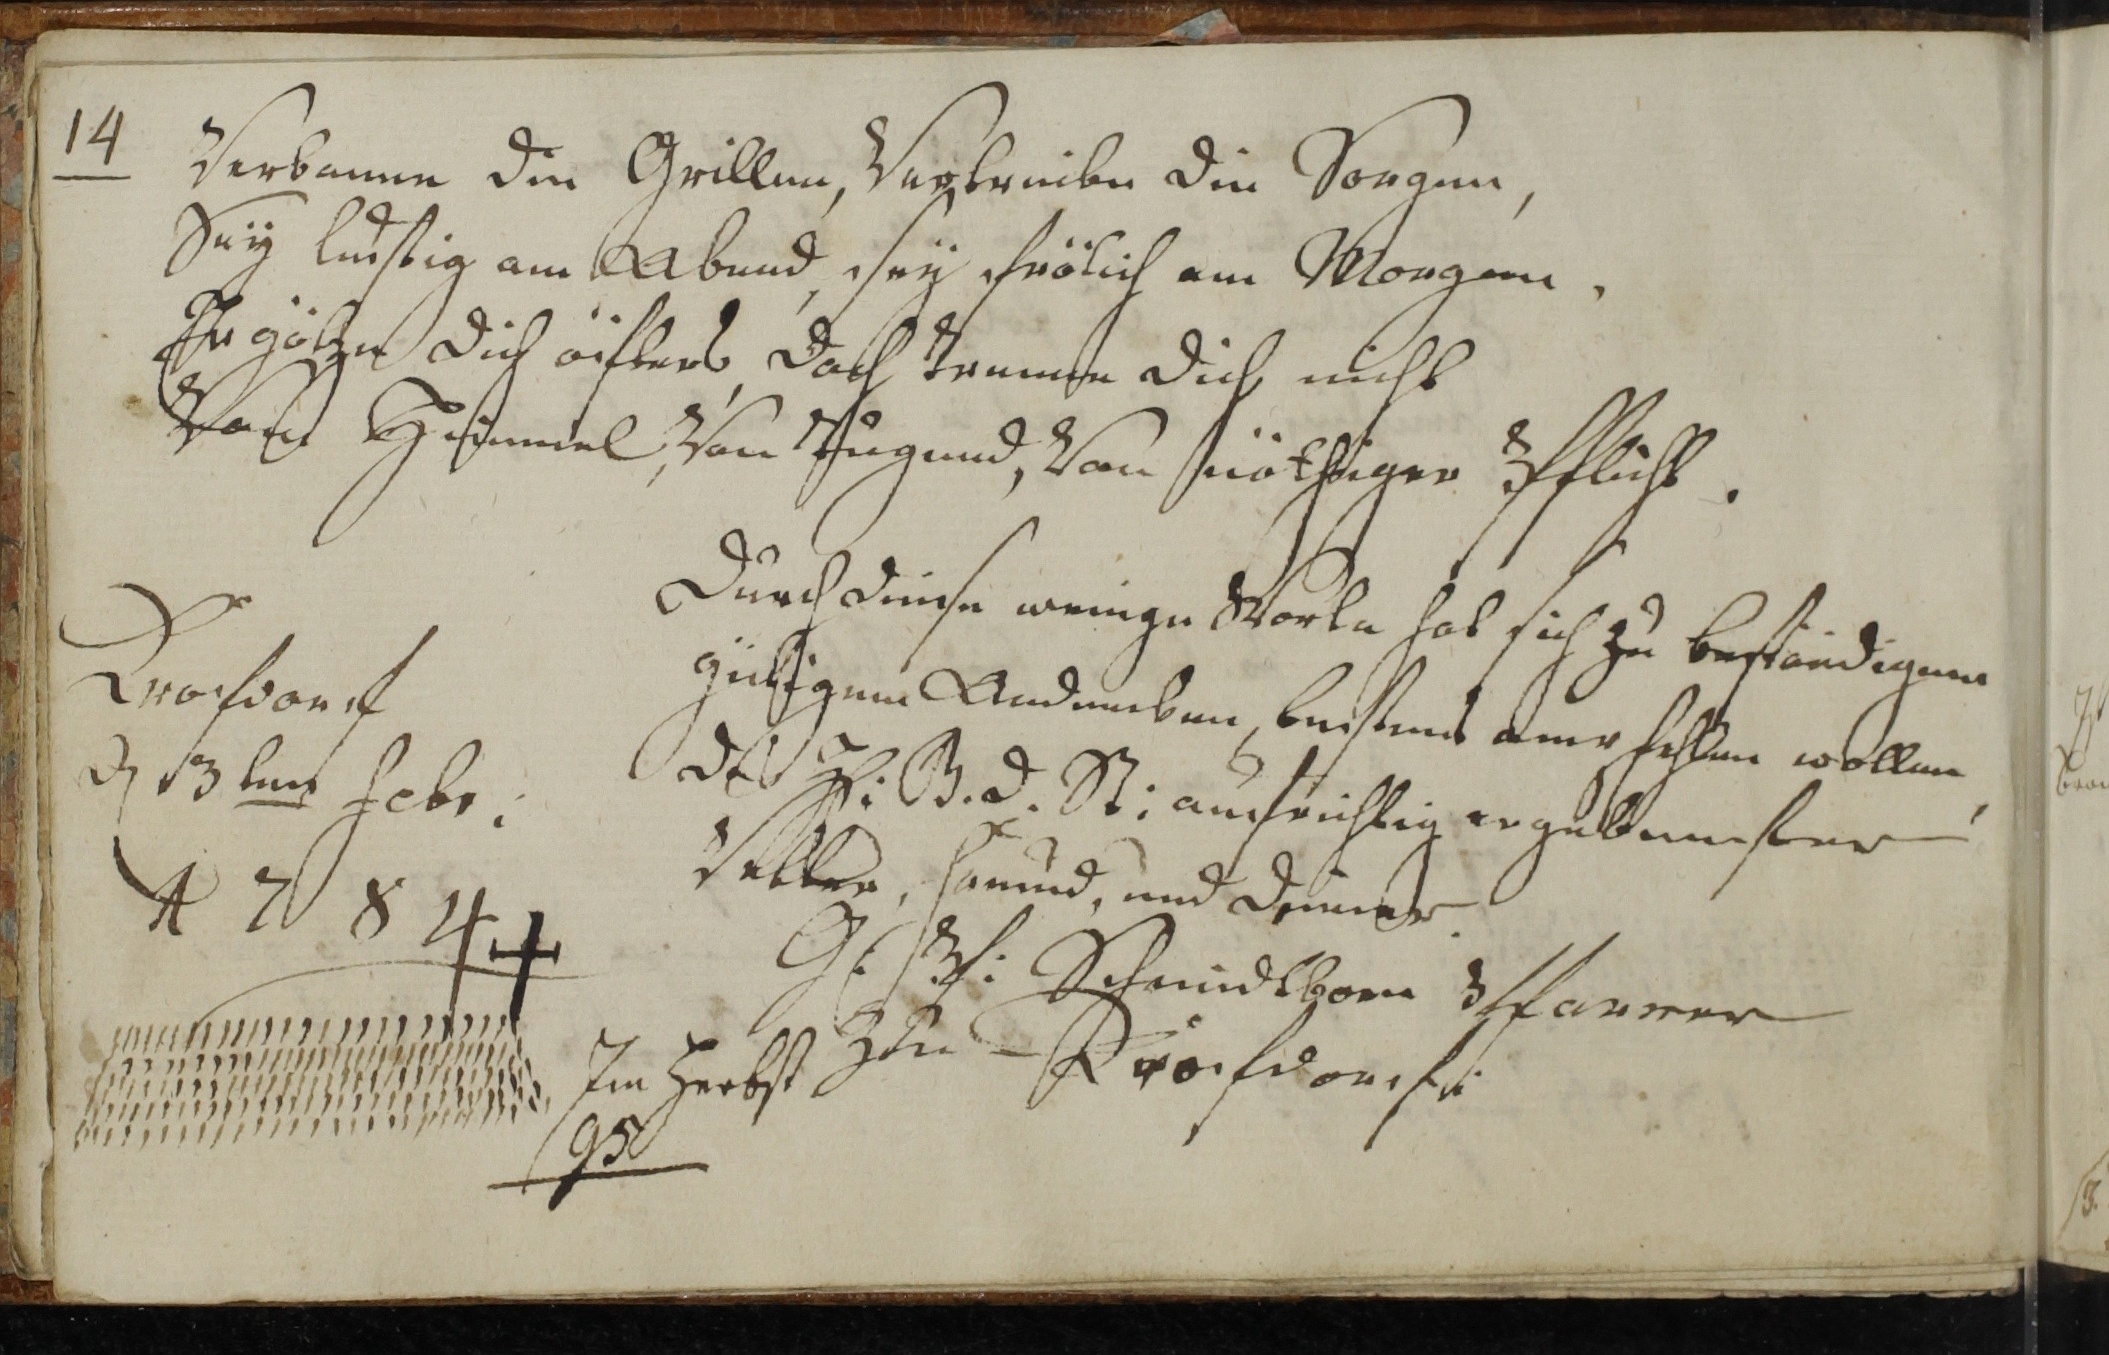 14
Verbanne die Grillen, Vertreibe die Sorgen,
Sey lustig am Abend, sey frölich am Morgen,
Ergötze dich öifters, doch trenne dich nicht
Vom Himmel, Von Tugend, Von nöthiger Pflicht.
Durch diese wenige Worte hat sich zu beständigem
gütigem Andencken, bestens anempfehlen wollen,
des H: B. d. St: aufrichtig ergebenster
Vetter, freund, und diener
G: Ph: Schmidtborn Pfarrer
zu Krofdorf:
Krofdorf
d 3ten Febr:
1784
Im Herbst
95